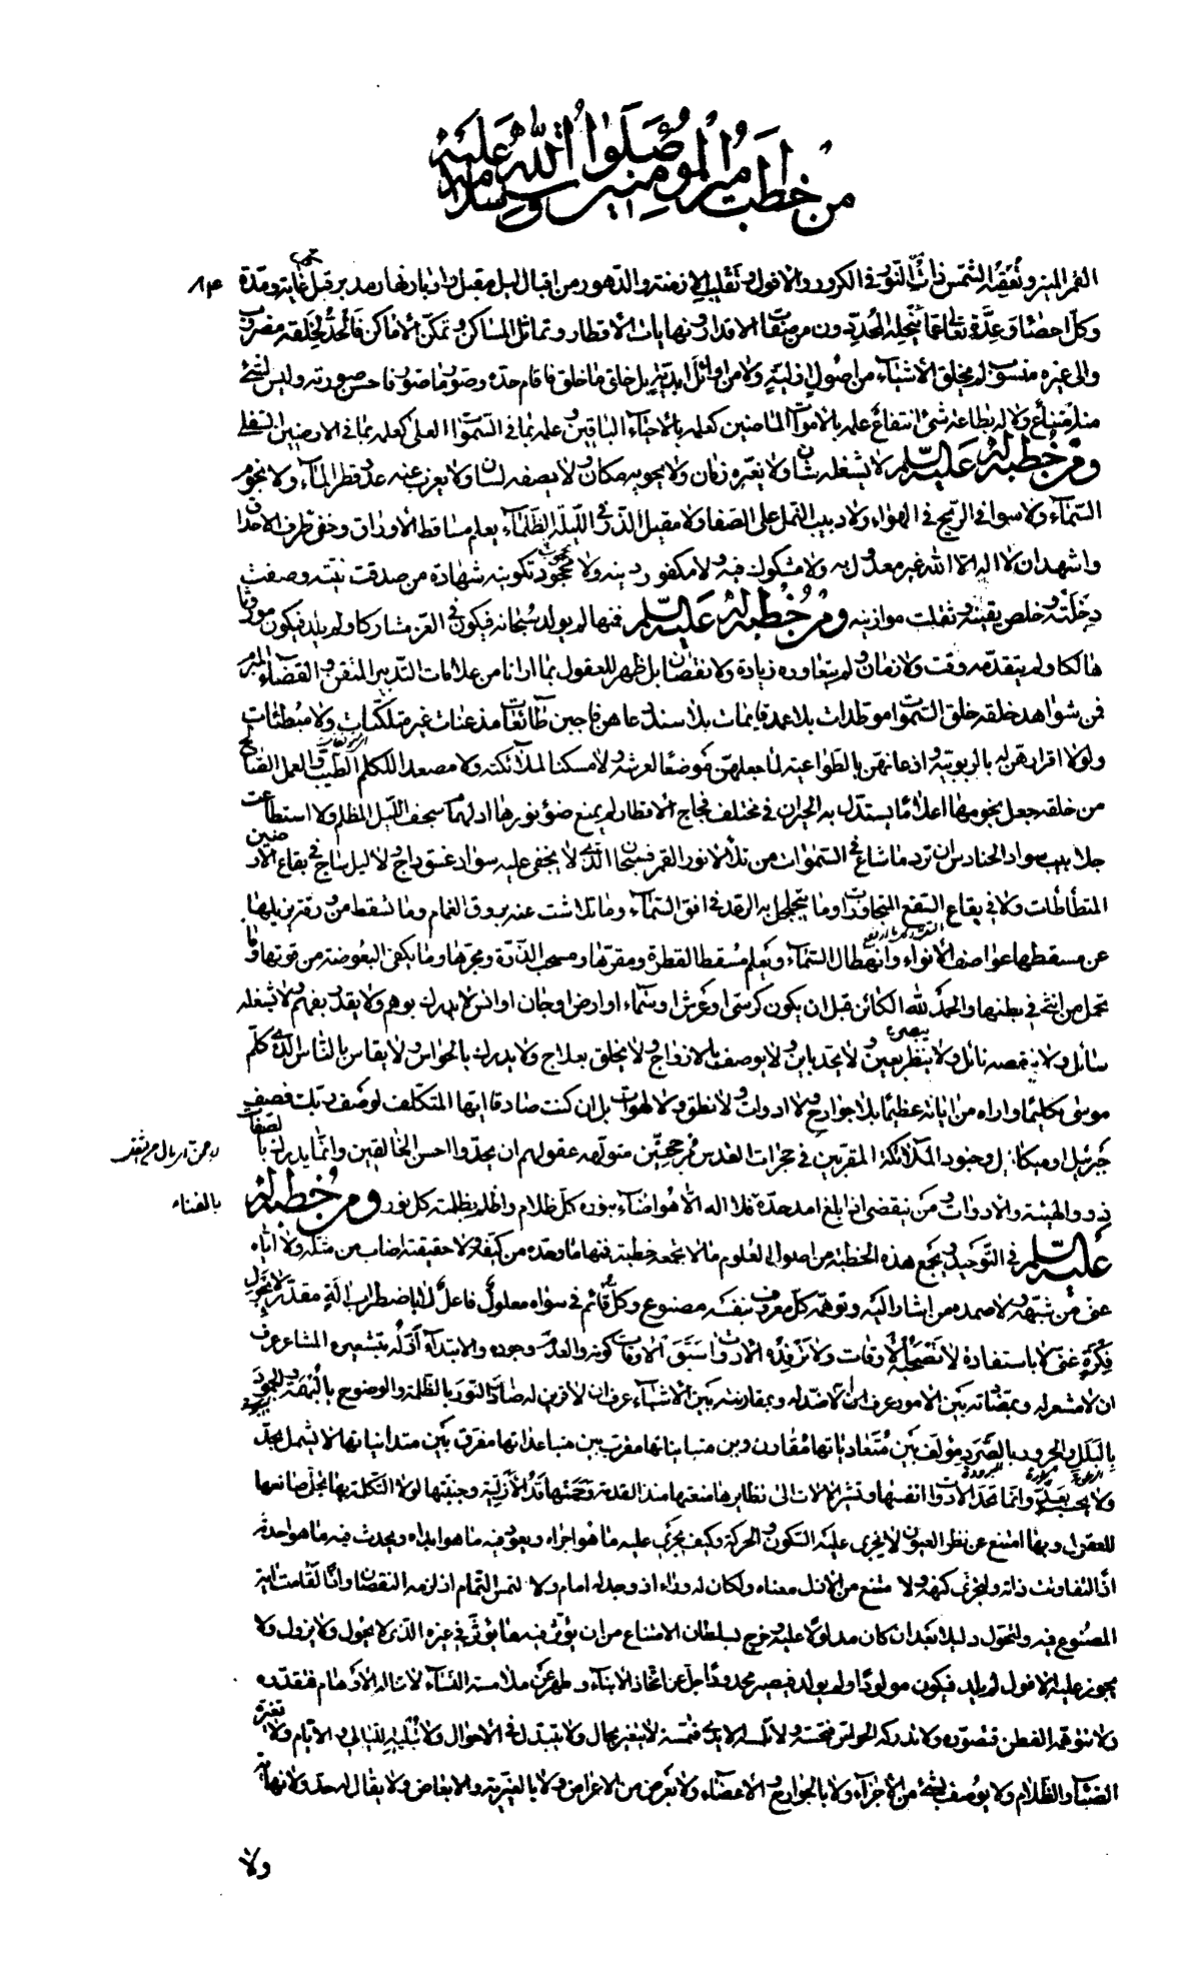 من خطب امير المؤمنين صلوات الله عليه وسلامه
القمر المنير وتعقبه الشمس ذات النور في الكرور والافول وتقليب الازمنة والدهور من اقبال ليل مقبل وادبار نهار مدبر قبل كل غاية ومدة
وكل احصاء وعدة تعالى عما ينحله المحددون من صفات الاقدار ونهايات الاقطار وتماثل المساكن وتمكن الاماكن فالحد لخلقه مضروب
والى غيره منسوب لم يخلق الأشياء من اصول ازلية ولا من اوائل ابدية بل خلق ما خلق فاقام حده وصور ما صور فاحسن صورته وليس لشئ
منه امتناع ولا له بطاعة شئ انتفاع علمه بالاموات الماضين كعلمه بالأحياء الباقين وعلمه بما في السموات العلى كعلمه بما في الارضين السفلى
ومن خطبة له عليه السلم لا يشغله شان ولا يغيره زمان ولا يحويه مكان ولا يصفه لسان ولا يعزب عنه عدد قطر الماء ولا نجوم
السماء ولا سوافي الريح في الهواء ولا دبيب النمل على الصفا ولا مقيل الذر في الليلة الظلماء يعلم مساقط الأوراق وخفي طرف الاحداق
واشهد ان لا اله الا الله غير معدول به ولا مشكوك فيه ولا مكفور دينه ولا مجحود تكوينه شهادة من صدقت نيته وصفت
دخلته وخلص يقينه وثقلت موازينه ومن خطبة له عليه السلم فمنها لم يولد سبحانه فيكون في العز مشاركا ولم يلد فيكون موروثا
هالكا ولم يتقدمه وقت ولا زمان ولم يتعاوره زيادة ولا نقصان بل ظهر للعقول بما ارانا من علامات التدبير المتقن والقضاء المبرم
فمن شواهد خلقه خلق السموات موطدات بلا عمد قايمات بلا سند دعاهن فاجبن طائعات مذعنات غير متلكئات ولا مبطئات
ولولا اقرارهن له بالربوبية واذعانهن بالطواعية لما جعلهن موضعا لعرشه ولا مسكنا لملائكته ولا مصعدا للكلم الطيب والعمل الصالح
من خلقه جعل نجومها اعلاما يستدل بها الحيران في مختلف فجاج الاقطار لم يمنع ضوء نورها ادلهمام سجف الليل المظلم ولا استطاعت
جلابيب سواد الحنادس ان ترد ما شاع في السموات من تلألأ نور القمر فسبحان الذي لا يخفى عليه سواد غسق داج ولا ليل ساج في بقاع الارضين
المتطأطات ولا في يفاع السفع المتجاورات وما يتجلجل به الرعد في افق السماء وما تلاشت عنه بروق الغمام وما تسقط من ورقة يزيلها
عن مسقطها عواصف الأنواء وانهطال السماء ويعلم مسقط القطرة ومقرها ومسحب الذرة ومجرها وما يكفي البعوضة من قوتها وما
تحمل من انثى في بطنها والحمد لله الكائن قبل ان يكون كرسي او عرش او سماء او ارض او جان او انس لا يدرك بوهم ولا يقدر بفهم ولا يشغله
سائل ولا ينقصه نائل ولا ينظر بعين ولا يحد باين ولا يوصف بالازواج ولا يخلق بعلاج ولا يدرك بالحواس ولا يقاس بالناس الذي كلم
موسى تكليما واراه من اياته عظيما بلا جوارح ولا ادوات ولا نطق ولا لهوات بل ان كنت صادقا ايها المتكلف لوصف ربك فصف
جبرئيل او ميكائيل وجنود الملائكة المقربين في حجرات القدس مرجحنين متولهة عقولهم ان يحدوا احسن الخالقين وانما يدرك بالصفات
ذوو الهيئة والادوات ومن ينقضي اذا بلغ امد حده فلا اله الا هو اضاء بنوره كل ظلام واظلم بظلمته كل نور ومن خطبة له
بالفناء
عليه السلم في التوحيد وتجمع هذه الخطبة من اصول العلوم ما لا تجمعه خطبة فمنها ما وحده من كيفه ولا حقيقته اصاب من مثله ولا اياه
عنى من شبهه ولا صمده من اشار اليه وتوهمه كل معروف بنفسه مصنوع وكل قائم في سواه معلول فاعل لا باضطراب الة مقدر لا بجول
فكرة غنى لا باستفادة لا تصحبه الأوقات ولا ترفده الادوات سبق الاوقات كونه والعدم وجوده والابتداء ازله بتشعيره المشاعر عرف
ان لا مشعر له وبمضادته بين الامور عرف ان لا ضد له وبمقارنته بين الأشياء عرف ان لا قرين له ضاد النور بالظلمة والوضوح بالبهمة والجمود
بالبلل والحرور بالصرد مؤلف بين متعادياتها مقارن بين متبايناتها مقرب بين متباعداتها مفرق بين متدانياتها لا يشمل بحد
ولا يحسب بعد وانما تحد الادوات انفسها وتشير الالات الى نظايرها منعتها منذ القدمة وحمتها قد الأزلية وجنبتها لولا التكملة بها تجلى صانعها
للعقول وبها امتنع عن نظر العيون لا يجري عليه السكون والحركة وكيف يجري عليه ما هو اجراه ويعود فيه ما هو ابداه ويحدث فيه ما هو احدثه
اذا لتفاوتت ذاته ولتجزى كنهه ولامتنع من الازل معناه ولكان له وراء اذ وجد له امام ولا لتمس التمام اذ لزمه النقصان واذا لقامت اية
المصنوع فيه ولتحول دليلا بعد ان كان مدلولا عليه وخرج بسلطان الامتناع من ان يؤثر فيه ما يؤثر في غيره الذي لا يحول ولا يزول ولا
يجوز عليه الافول لم يلد فيكون مولودا ولم يولد فيصير محدودا جل عن اتخاذ الابناء وطهر عن ملامسة النساء لا تناله الأوهام فتقدره
ولا تتوهمه الفطن فتصوره ولا تدركه الحواس فتحسه ولا تلمسه الايدي فتمسه لا يتغير بحال ولا يتبدل في الأحوال ولا تبليه الليالي والايام ولا تغيره
الضياء والظلام ولا يوصف بشئ من الأجزاء ولا بالجوارح والأعضاء ولا بعرض من الاعراض ولا بالغيرية والابعاض ولا يقال له حد ولا نهاية
ولا